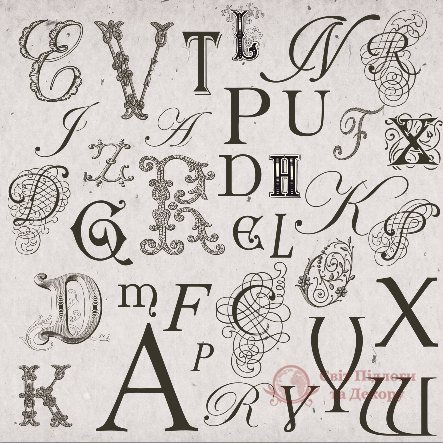 E V T L N R
I Z A P U F X
D G R D H K P
E L
D m F C O X
A P Y
K R V
Світ Підлоги
та Декору